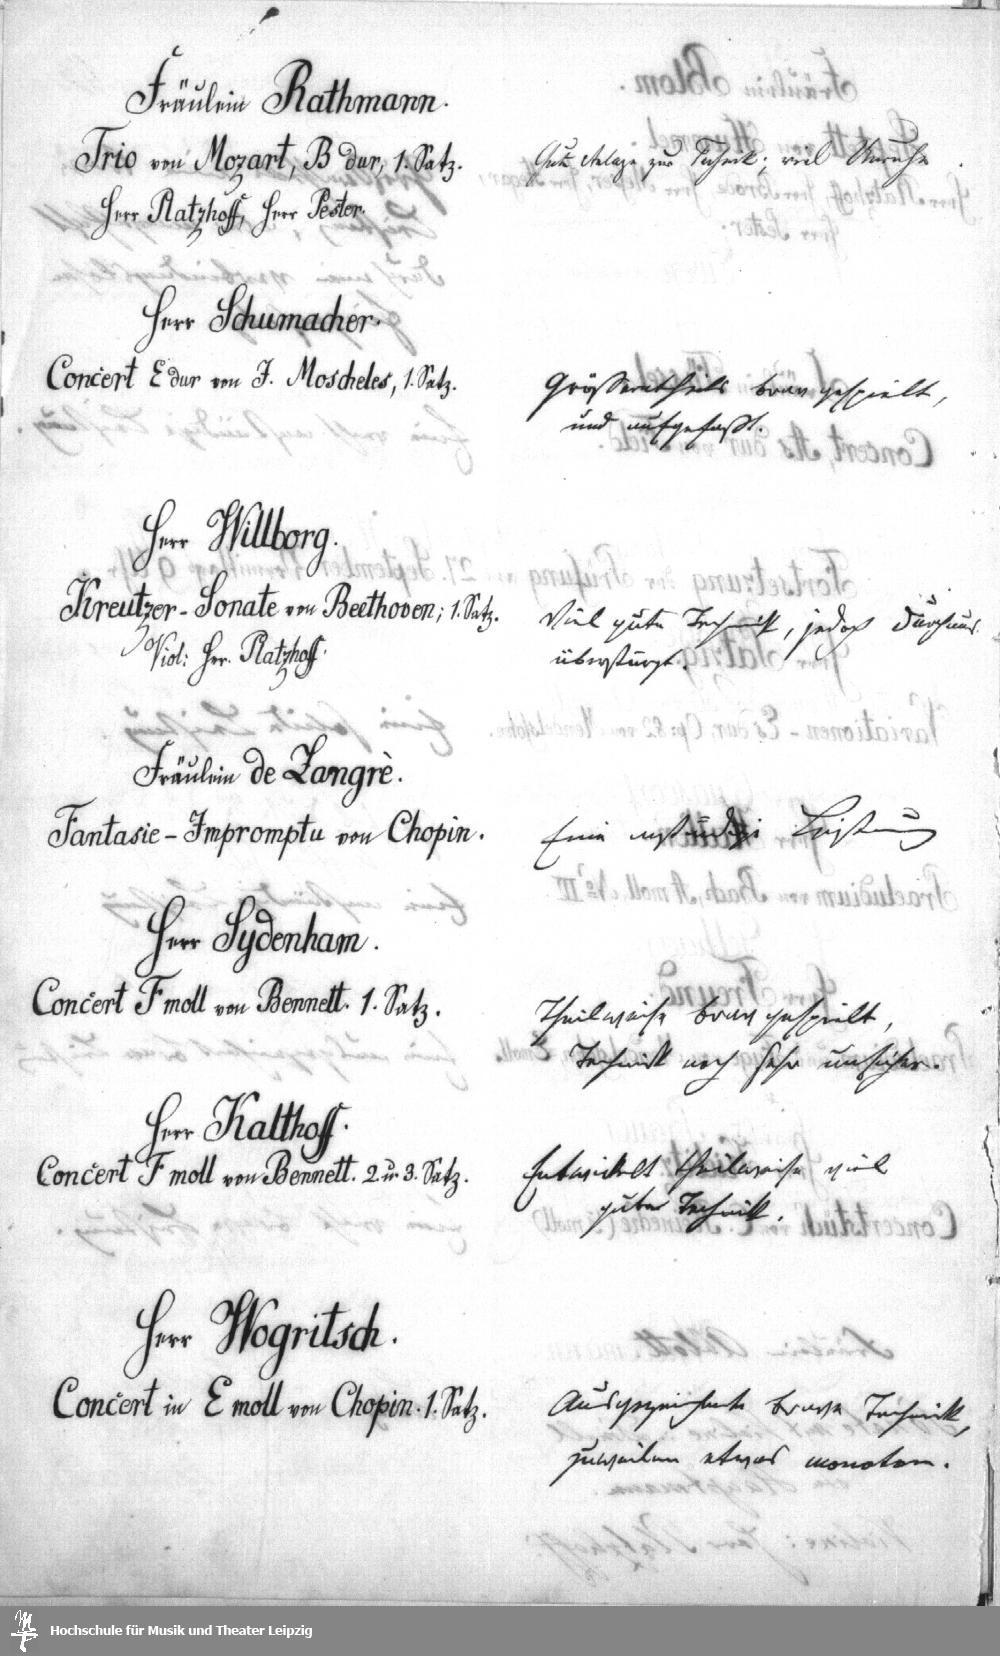 Fräulein Rathmann.
Trio von Mozart, B dur, 1. Satz.
Gute Anlage zur Technik; viel Unruhe.
Herr Platzhoff, Herr Pester.
Herr Schumacher.
Concert E dur von J. Moscheles, 1. Satz.
Grösserentheils brav gespielt,
und aufgefaßt.
Herr Willborg.
Kreutzer-Sonate von Beethoven; 1. Satz.
Viol: Hr. Platzhoff.
Viel gute Technik, jedoch durchweg
überstürzt.
Fräulein de Zangrè.
Fantasie-Impromptu von Chopin.
Eine anständige Leistung
Herr Sydenham.
Concert F moll von Bennett. 1. Satz.
Theilweise brav gespielt,
Technik noch sehr unsicher.
Herr Kalthoff.
Concert F moll von Bennett. 2. u. 3. Satz.
Entwickelt theilweise viel
guter Technik.
Herr Wogritsch.
Concert in E moll von Chopin. 1. Satz.
Ausgezeichnete brave Technik,
zuweilen etwas monoton.
Hochschule für Musik und Theater Leipzig